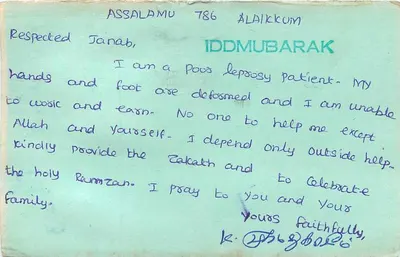 ASSALAMU 786 ALAIKKUM
Respected Janab,
IDDMUBARAK
I am a poor leprosy patient. My
hands and foot are deformed and I am unable
to work and earn. No one to help me except
Allah and yourself. I depend only outside help.
Kindly provide the Zakath and to celebrate
the holy Ramzan. I pray to you and your
family.
Yours faithfully,
K.